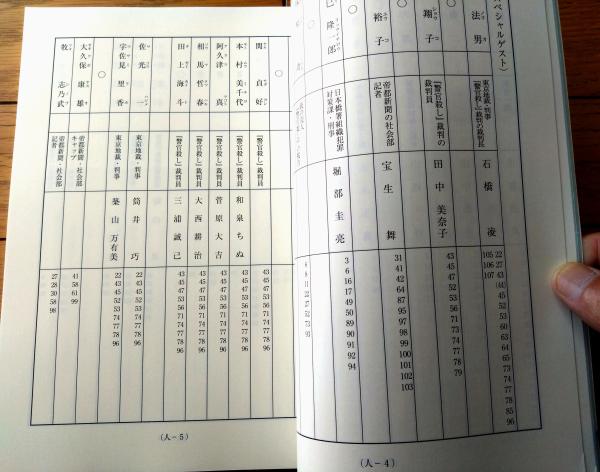 ペシャルゲスト）
○
法男
ノリオ
東京地裁・判事
『警官殺し』裁判の裁判長
石橋 凌
22
27
43
(44)
45
52
53
60
63
64
65
73
74
77
78
85
96
105
106
107
○
翔子
ショウコ
『警官殺し』裁判の
裁判員
田中 美奈子
43
45
47
52
53
56
71
73
74
77
78
79
○
裕子
ユウコ
帝都新聞の社会部
記者
宝生 舞
31
41
42
64
87
95
97
98
99
100
101
102
103
隆一郎
日本橋署組織犯罪
対策課・刑事
堀部 圭亮
3
6
16
17
49
50
89
90
91
92
94
4
8
11
22
27
52
73
93
（人−4）
○
関 貞好
『警官殺し』裁判員
43
45
47
53
56
71
74
77
78
96
本村 美千代
『警官殺し』裁判員
和泉 ちぬ
43
45
47
53
56
71
74
77
78
96
阿久津 真
『警官殺し』裁判員
菅原 大吉
43
45
47
53
56
71
74
77
78
96
相馬 哲春
『警官殺し』裁判員
大西 耕治
43
45
47
53
56
71
74
77
78
96
田上 海斗
『警官殺し』裁判員
三浦 誠己
43
45
47
53
56
71
74
77
78
96
○
佐光 一
ハジメ
東京地裁・判事
筒井 巧
22
43
45
52
53
74
77
78
96
宇佐見 里香
東京地裁・判事
築山 万有美
22
43
45
52
53
74
77
78
96
○
大久保 康雄
帝都新聞・社会部
キャップ
41
58
61
99
牧 志乃武
帝都新聞・社会部
記者
27
28
30
58
98
（人−5）